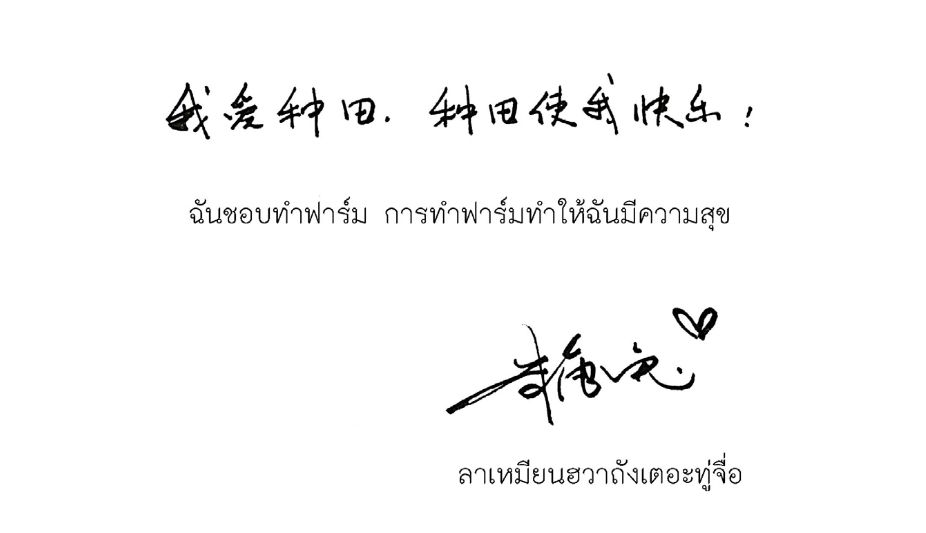 我爱种田.种田使我快乐!
ฉันชอบทำฟาร์ม การทำฟาร์มทำให้ฉันมีความสุข
ลาเหมียนฮวาถังเตอะทู่จื่อ